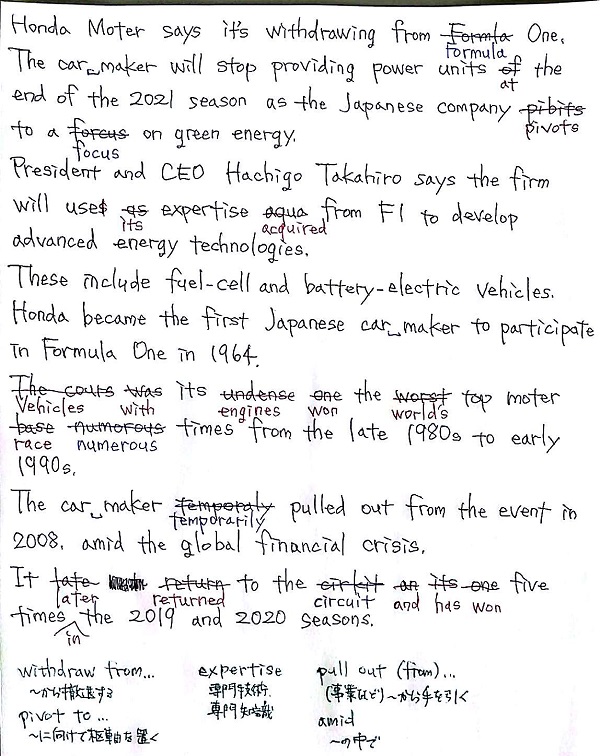 Honda Moter says it's withdrawing from Formla One.
formula
The car maker will stop providing power units of the
at
end of the 2021 season as the Japanese company pibits
pivots
to a forcus on green energy.
focus
President and CEO Hachigo Takahiro says the firm
will uses as expertise aqua from F1 to develop
its acquired
advanced energy technologies.
These include fuel-cell and battery-electric vehicles.
Honda became the first Japanese car maker to participate
in Formula One in 1964.
The cours was its undense one the worst top moter
Vehicles with engines won world's
base numorous times from the late 1980s to early
race numerous
1990s.
The car maker temporaly pulled out from the event in
temporarily
2008. amid the global financial crisis.
It late return to the cirkit an its one five
later returned circuit and has won
times the 2019 and 2020 seasons.
in
withdraw from... expertise pull out (from)...
～から撤退する 専門技術. (事業など)～から手を引く
pivot to ... 専門知識 amid
～に向けて枢軸を置く ～の中で